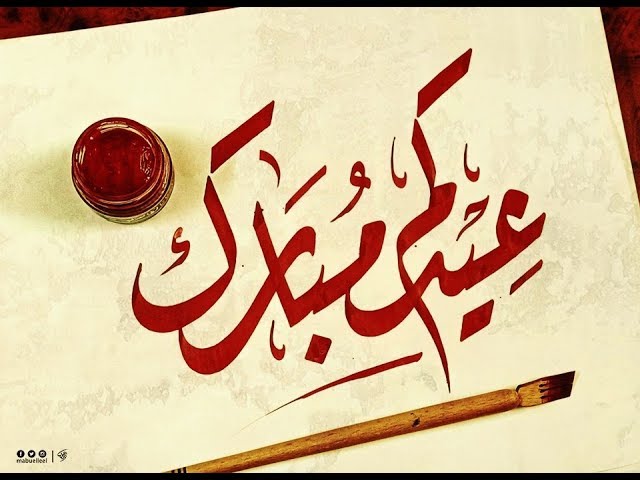 عيدكم مُبارك
mabuelleel